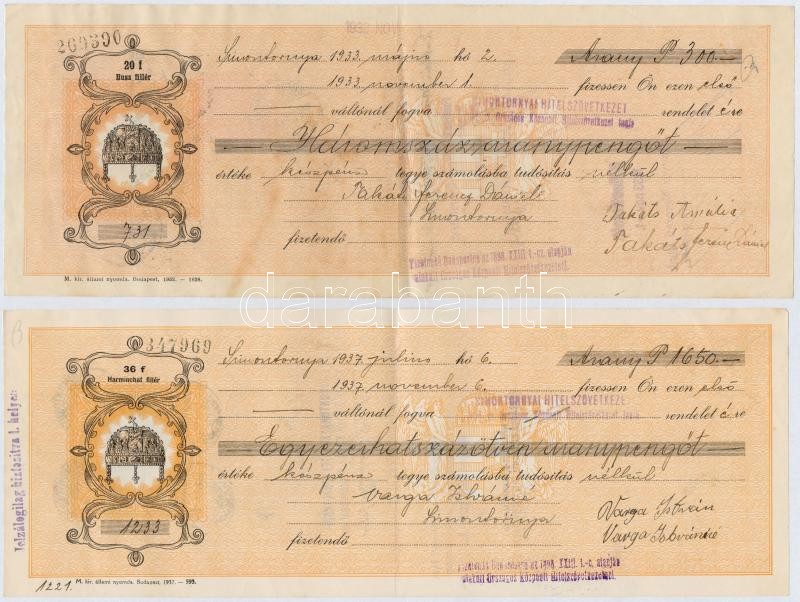 269390
20 f
Husz fillér
731
Simontornya 1933. május hó 2. Arany P 300.—
1933. november 1. fizessen Ön ezen első
váltónál fogva SIMONTORNYAI HITELSZÖVETKEZET rendelet éire
Országos Központi Hitelszövetkezet tagja
Háromszáz aranypengőt
értéke készpénz tegye számolásba tudósítás nélkül
Takáts Ferenc Dániel
Simontornya
Takáts Amália
Takáts Ferenc Dániel
fizetendő
Fizetendő Budapesten az 1898. XXIII. t.-cz. alapján
alakult Országos Központi Hitelszövetkezetnél.
M. kir. állami nyomda. Budapest, 1932. —
darabanth
347969
36 f
Harminchat fillér
1233
Jelzálogilag biztosítva I. helyen
Simontornya 1937. július hó 6. Arany P 1650.—
1937. november 6. fizessen Ön ezen első
váltónál fogva SIMONTORNYAI HITELSZÖVETKEZET rendelet éire
Országos Központi Hitelszövetkezet tagja
Egyezerhatszázötven aranypengőt
értéke készpénz tegye számolásba tudósítás nélkül
Varga Istvánné
Simontornya
Varga István
Varga Istvánné
fizetendő
Fizetendő Budapesten az 1898. XXIII. t.-c. alapján
alakult Országos Központi Hitelszövetkezetnél.
1221. M. kir. állami nyomda. Budapest, 1937. — 595.